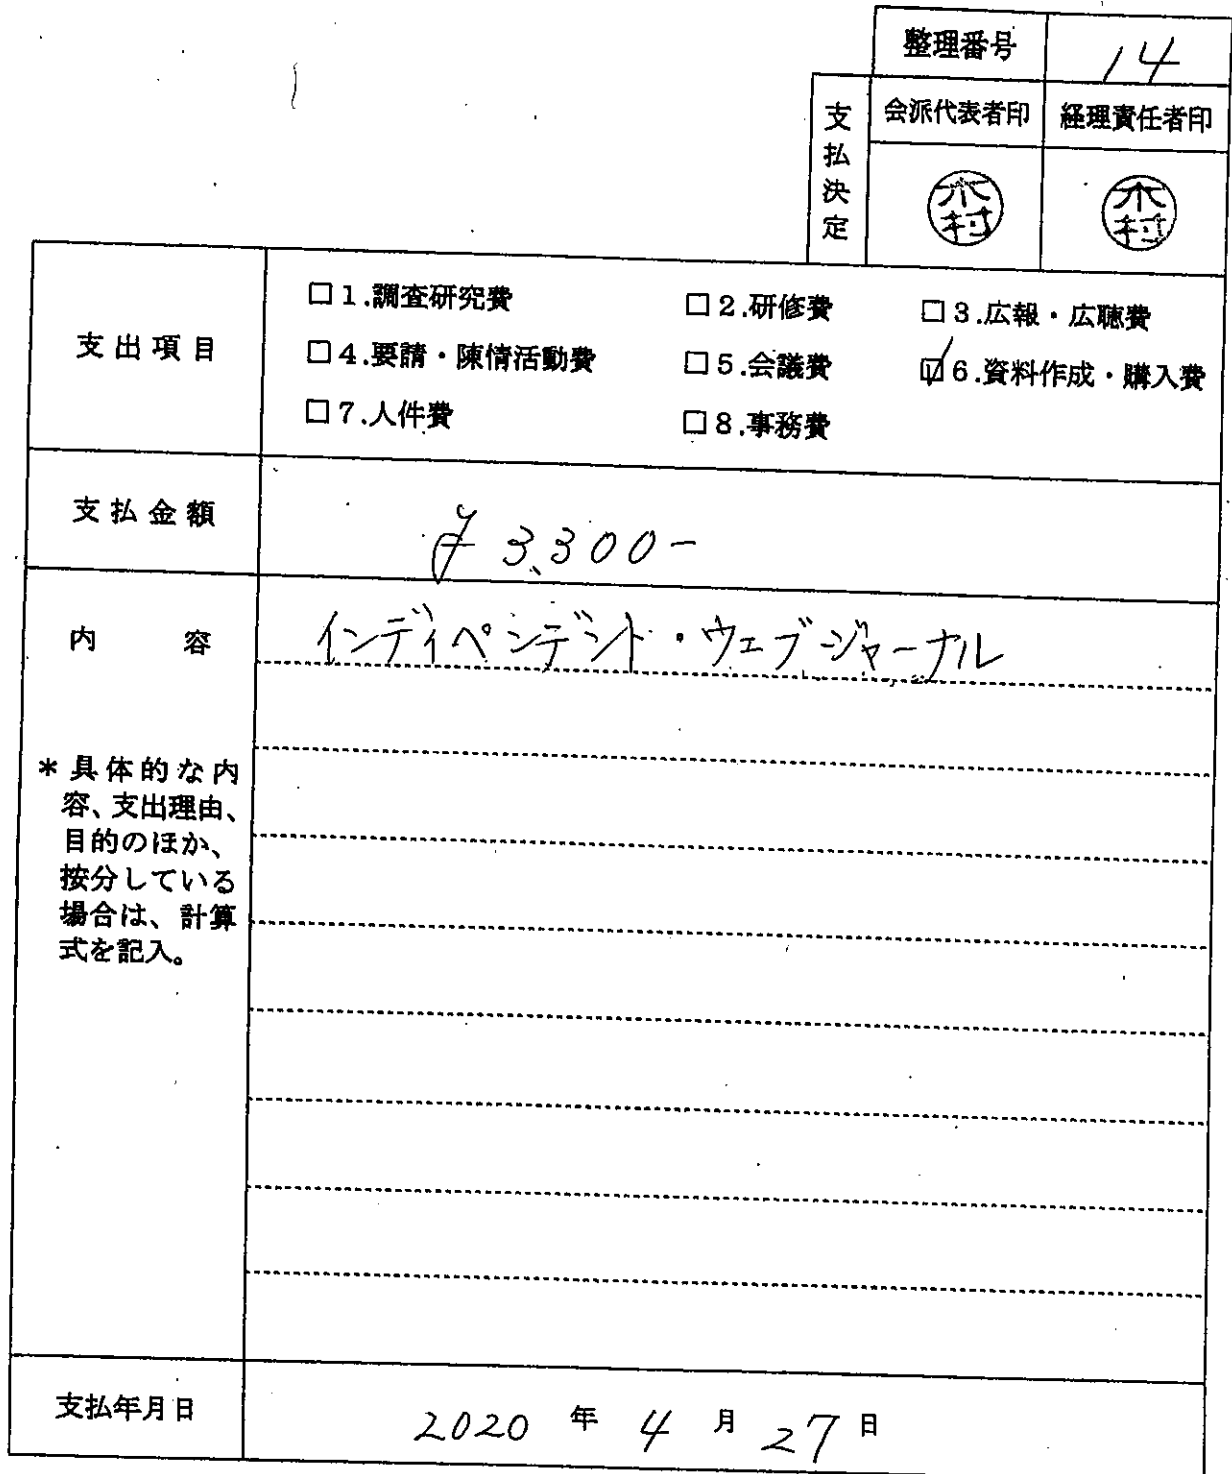 整理番号 14
支払決定
会派代表者印 経理責任者印
木村 木村
支出項目
□1.調査研究費 □2.研修費 □3.広報・広聴費
□4.要請・陳情活動費 □5.会議費 ☑6.資料作成・購入費
□7.人件費 □8.事務費
支払金額 ¥3,300-
内容 インディペンデント・ウェブジャーナル
*具体的な内
容、支出理由、
目的のほか、
按分している
場合は、計算
式を記入。
支払年月日 2020年4月27日